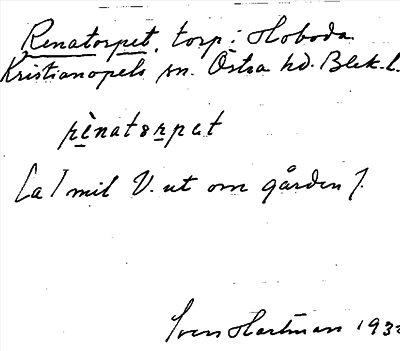 Renatorpet, torp: Sloboda
Kristianopels sn. Östra hd. Blek. l.
rènatorpet
Ca 1 mil V. ut om gården 7.
Sven Hartman 193